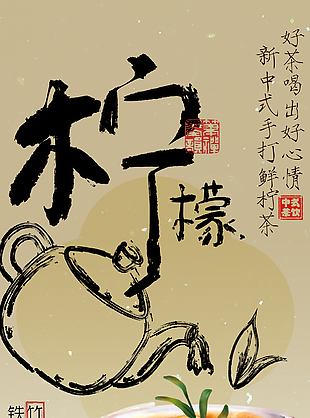 好茶喝出好心情
新中式手打鲜柠茶
中式
茶饮
柠檬
铁
竹